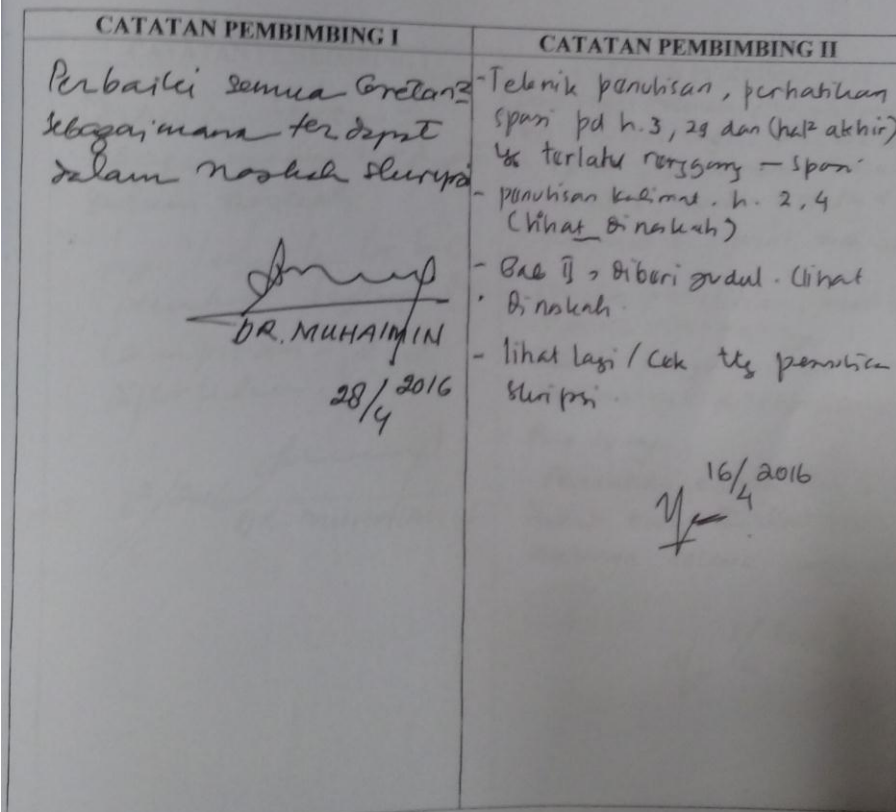 CATATAN PEMBIMBING I
Perbaiki semua Coretan2
sebagaimana terdapat
dalam naskah skripsi
DR. MUHAIMIN
28/4 2016
CATATAN PEMBIMBING II
- Teknik penulisan, perhatikan
spasi pd h. 3, 29 dan (hal2 akhir)
yg terlalu renggang - spasi
- penulisan kalimat. h. 2, 4
(lihat di naskah)
- Bab II, diberi judul. (lihat
di naskah.
- lihat lagi / cek ttg penulisan
skripsi.
16/4 2016